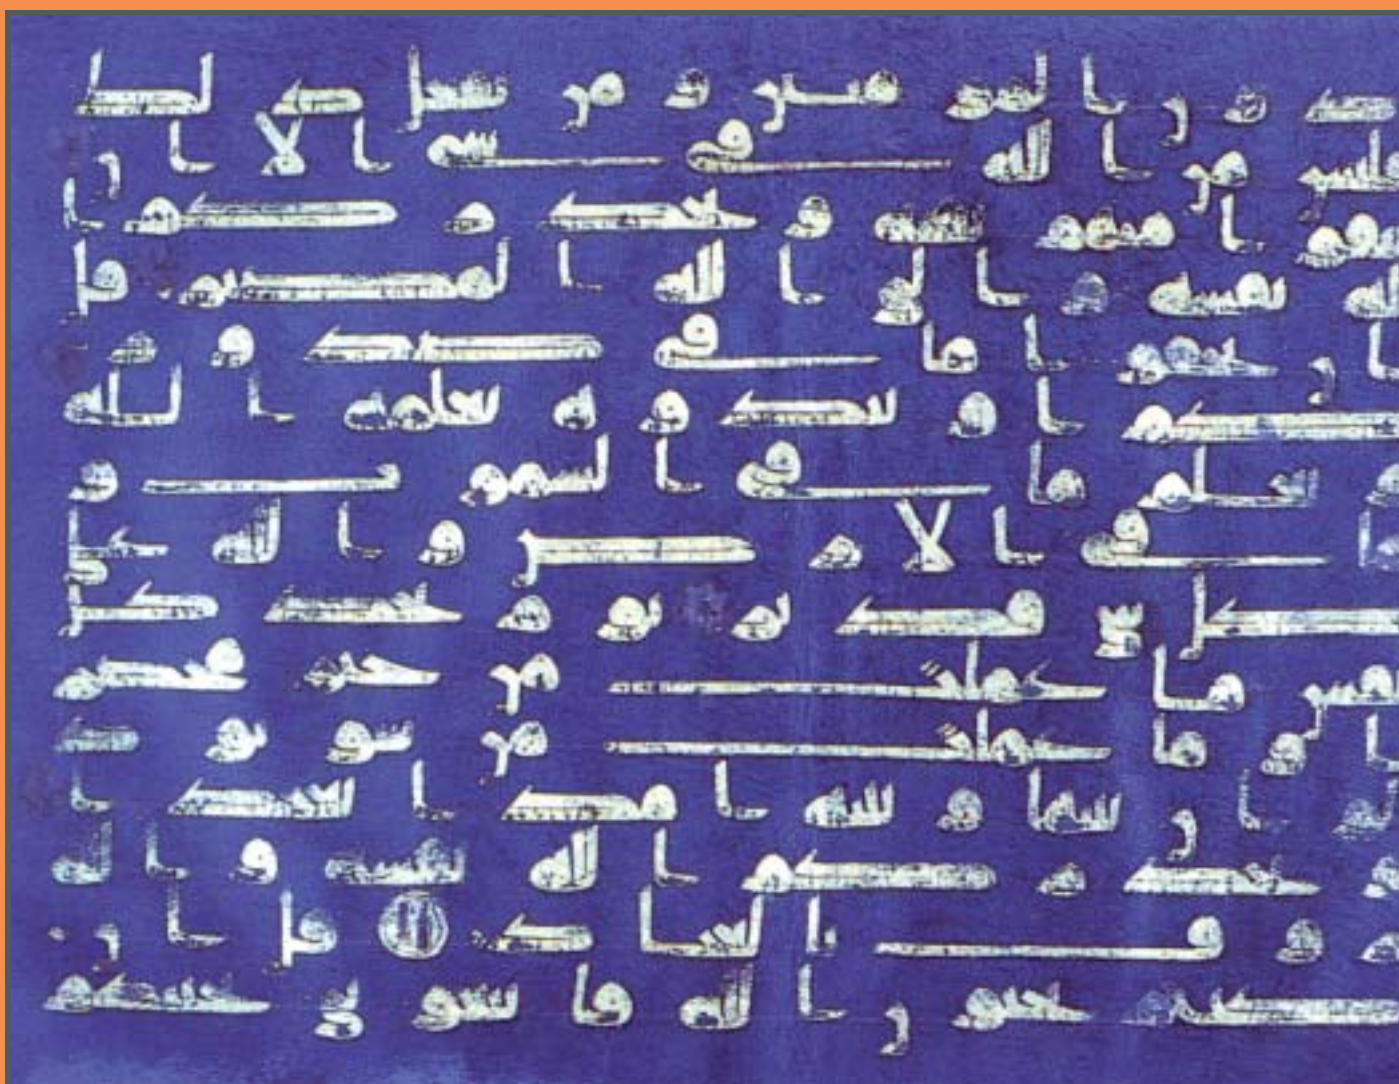 دون المومنين ومن يفعل ذلك
فليس من الله في شي الا ان
تتقوا منهم تقيه ويحذركم ا
لله نفسه والى الله المصير قل
ان تخفوا ما في صدو
ركم او تبدوه يعلمه الله
ويعلم ما في السموت و
ما في الارض والله على
كل شي قدير يوم تجد كل
نفس ما عملت من خير محضر
ا وما عملت من سو تود
لو ان بينها وبينه امدا بعيدا
ويحذركم الله نفسه والله
روف بالعباد قل ان
كنتم تحبون الله فاتبعوني يحببكم